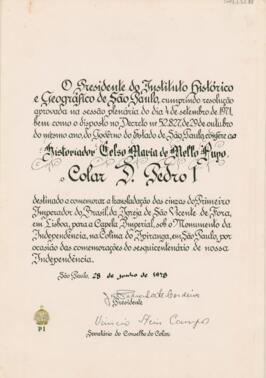 O Presidente do Instituto Histórico
e Geográfico de São Paulo, cumprindo resolução
aprovada na sessão plenária do dia 4 de setembro de 1971,
bem como o disposto no Decreto nº 52.827, de 29 de outubro
do mesmo ano, do Govêrno do Estado de São Paulo, confere ao
Historiador Celso Maria de Mello Pupo
o Colar D. Pedro I
destinado a comemorar a transladação das cinzas do Primeiro
Imperador do Brasil, da Igreja de São Vicente de Fora,
em Lisboa, para a Capela Imperial, sob o Monumento da
Independência, na Colina do Ipiranga, em São Paulo, por
ocasião das comemorações do sesquicentenário de nossa
Independência.
São Paulo, 28 de junho de 1978
Presidente
Vinicio Stein Campos
Secretário do Conselho do Colar
P I